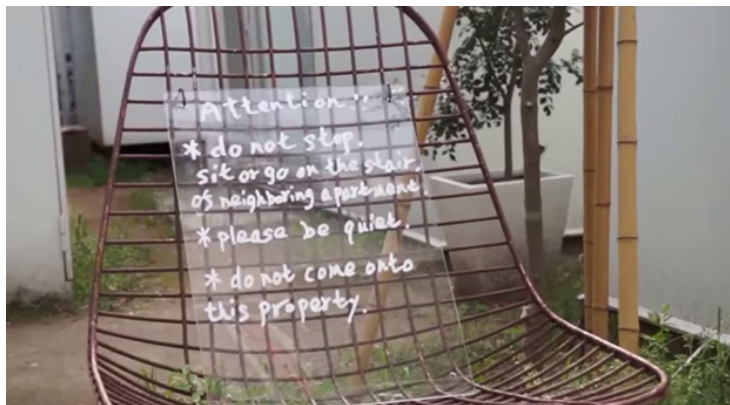 Attention!!
* do not stop.
sit or go on the stair.
of neighboring apartment.
* please be quiet.
* do not come onto
this property.